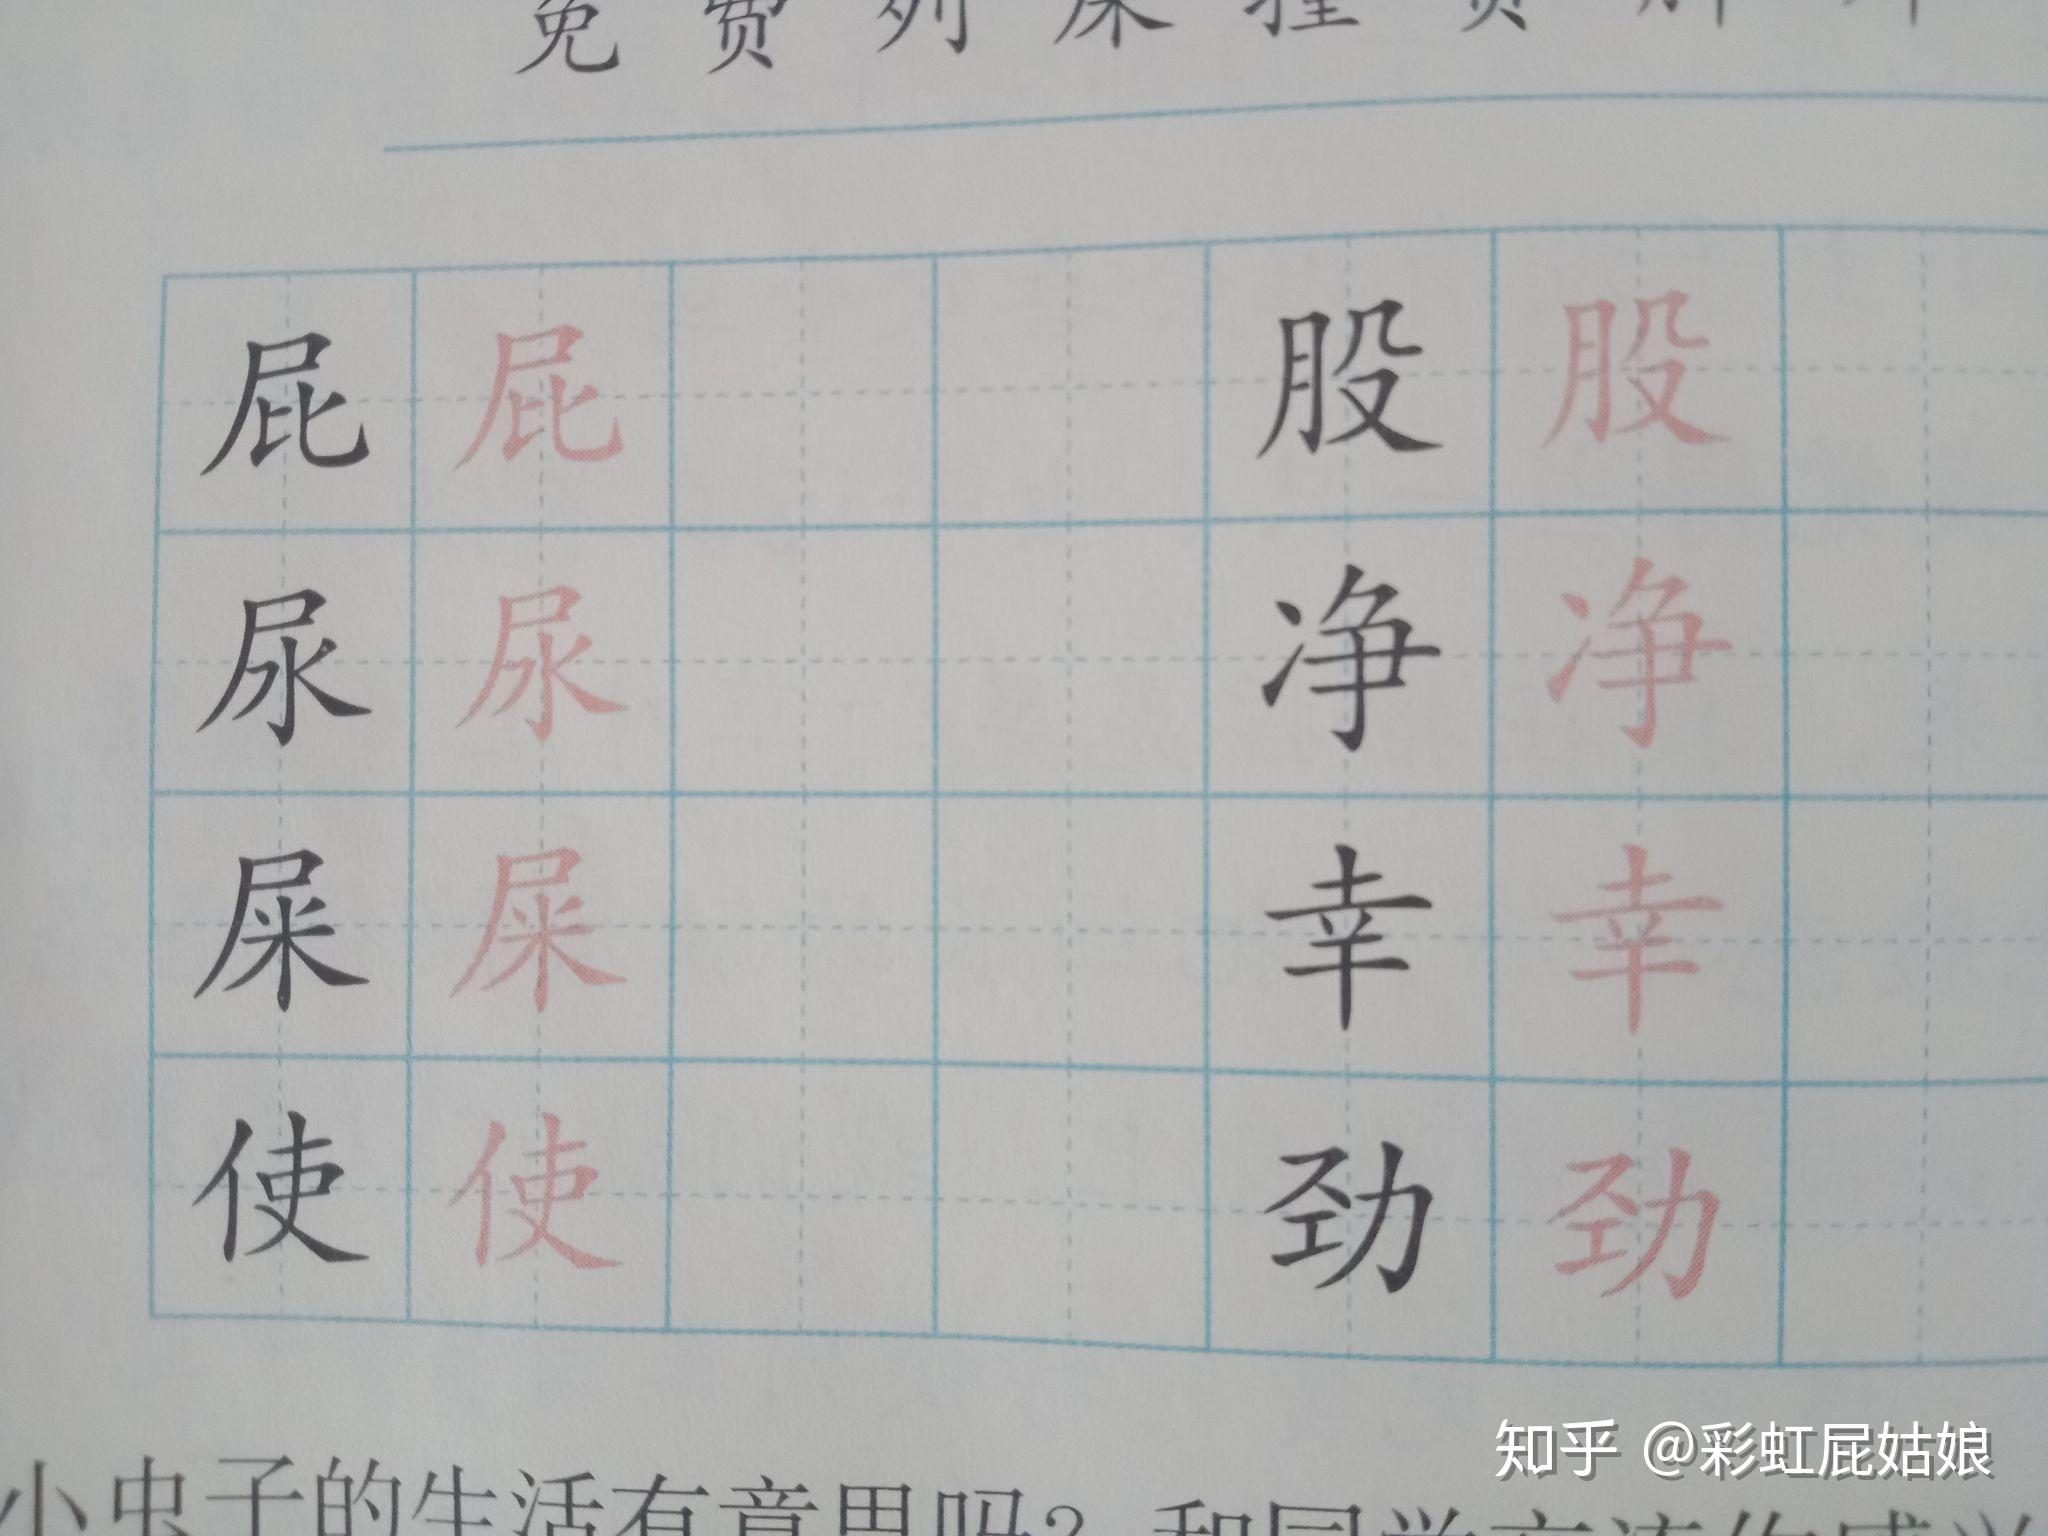 免 费 列 屎
屁 屁 股 股
尿 尿 净 净
屎 屎 幸 幸
使 使 劲 劲
小虫子的生活有意思吗？和同学交流你感兴
知乎 @彩虹屁姑娘